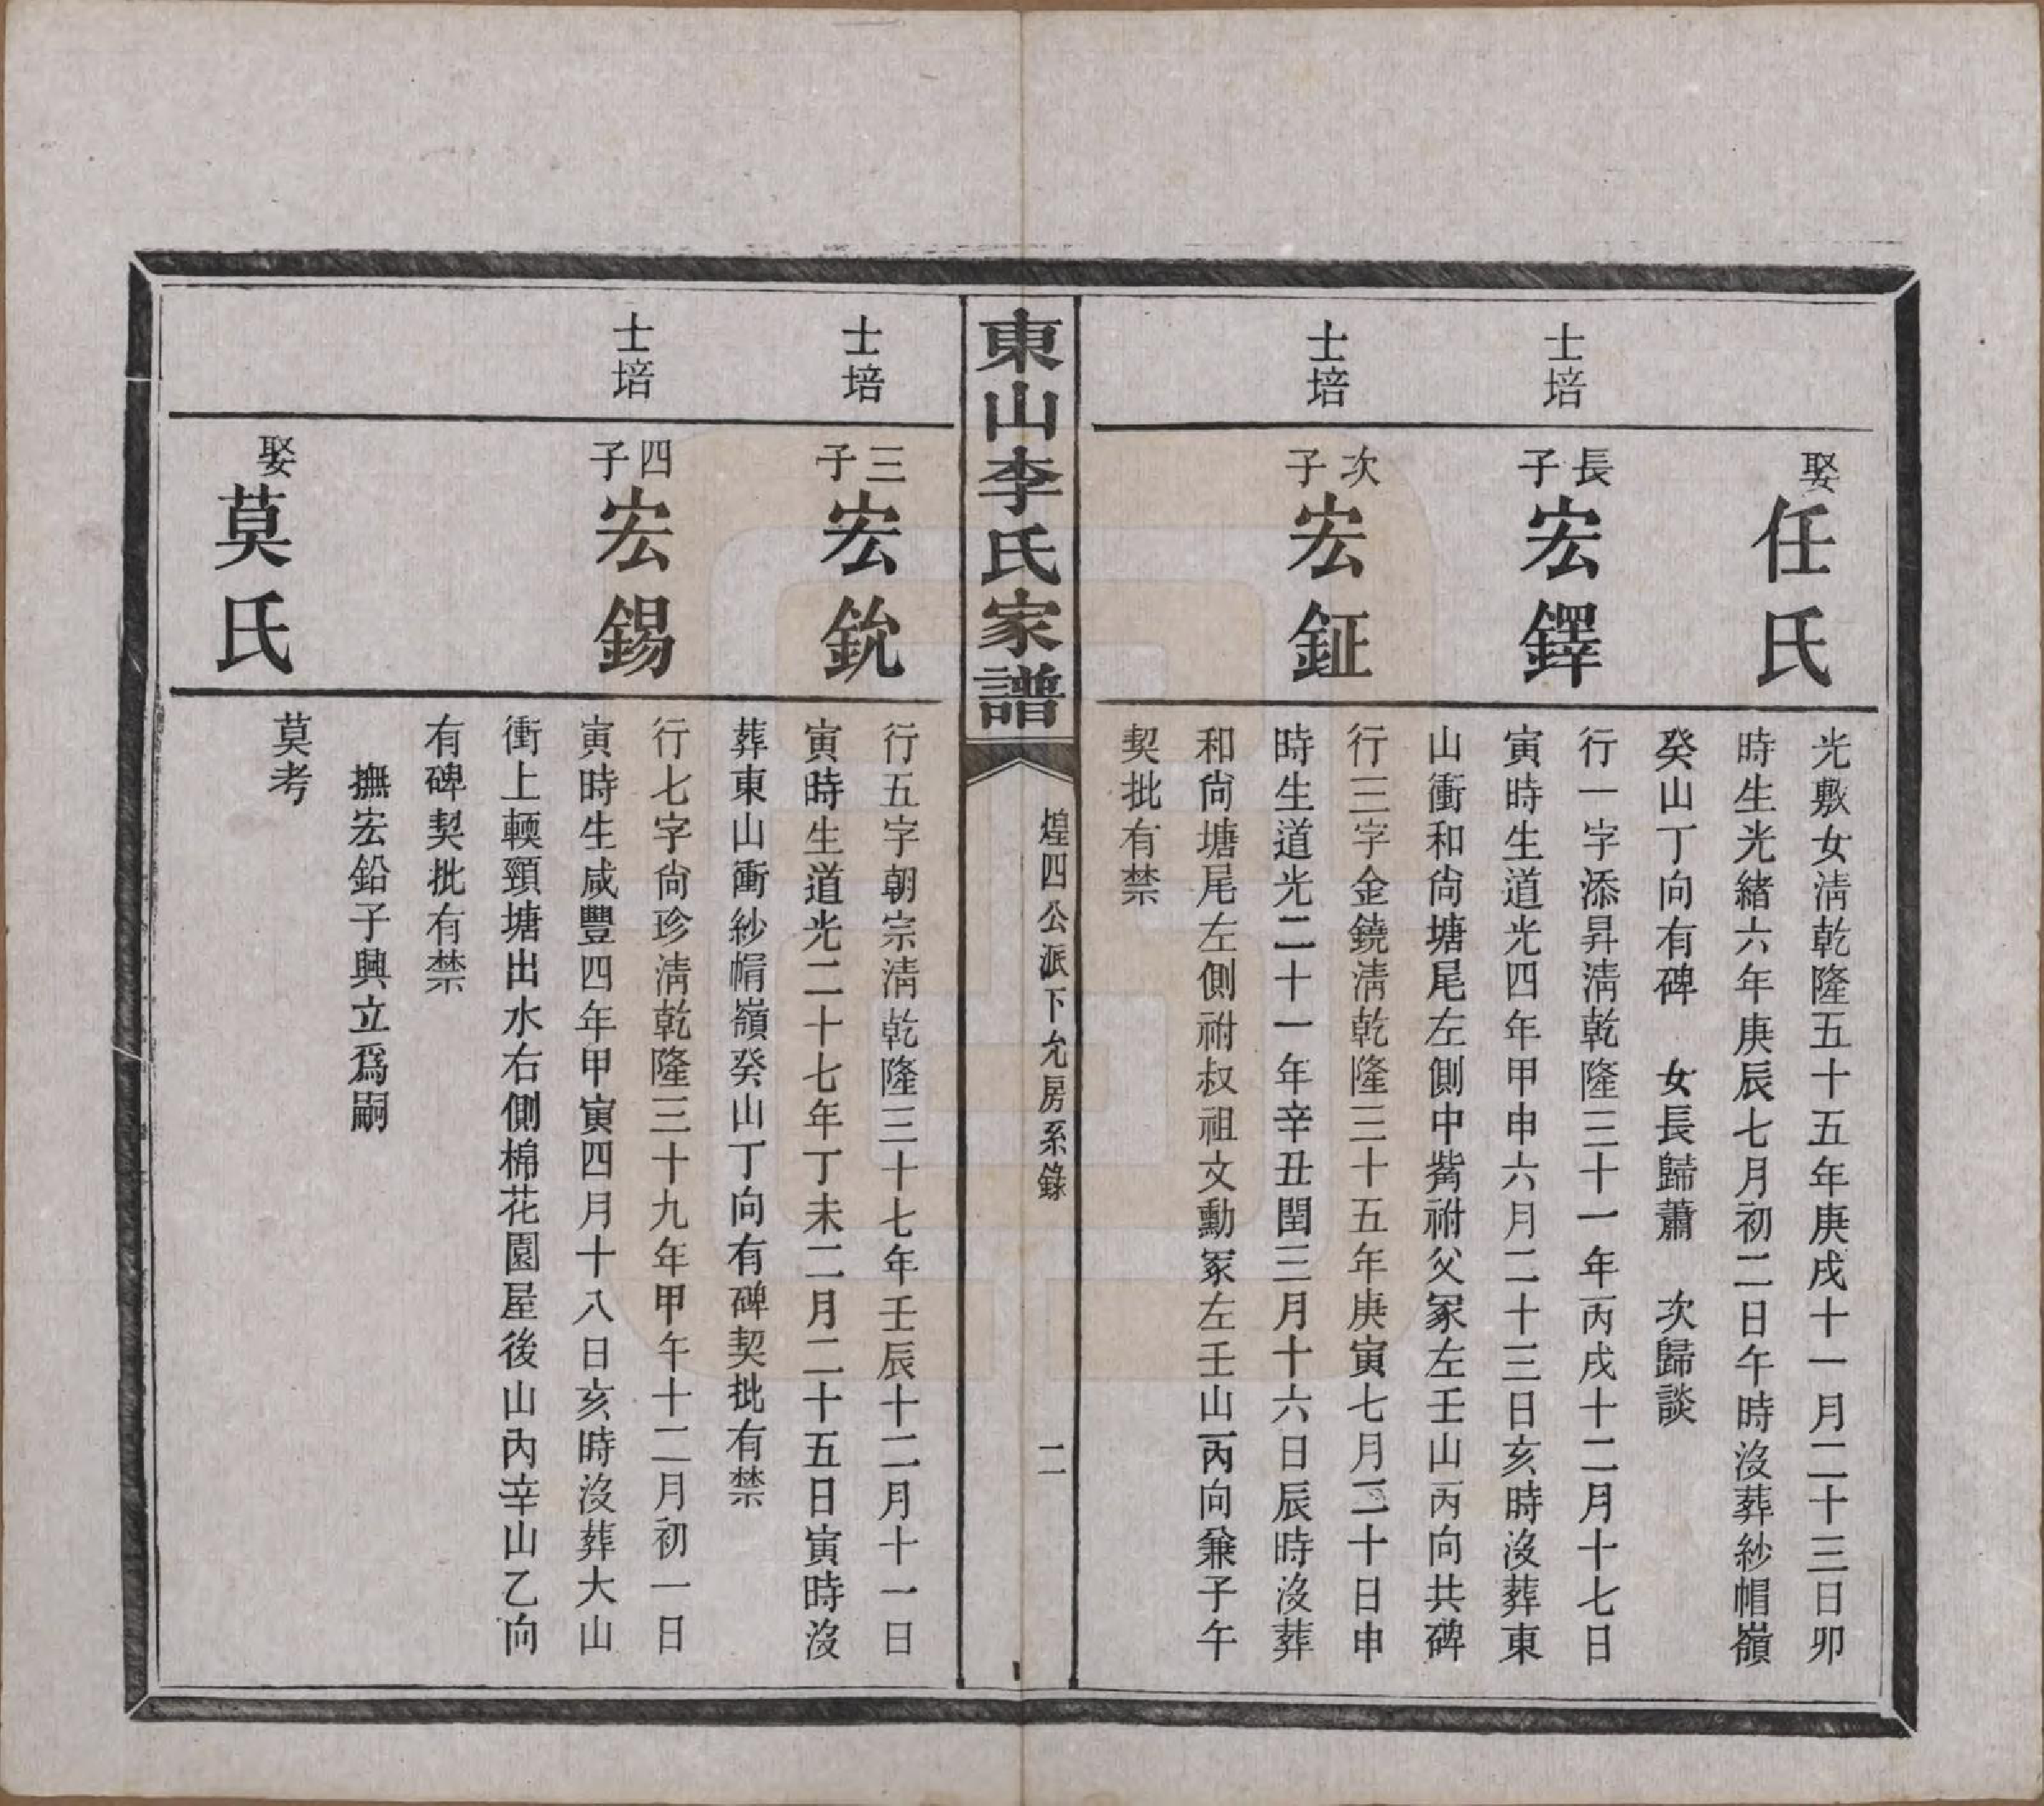 娶
任氏
光敷女淸乾隆五十五年庚戌十一月二十三日卯
時生光緒六年庚辰七月初二日午時沒葬紗帽嶺
癸山丁向有碑　女長歸蕭　次歸談
士培
長子
宏鐸
行一字添昇淸乾隆三十一年丙戌十二月十七日
寅時生道光四年甲申六月二十三日亥時沒葬東
山衝和尙塘尾左側中觜祔父冢左壬山丙向共碑
士培
次子
宏鉦
行三字金鐃淸乾隆三十五年庚寅七月二十日申
時生道光二十一年辛丑閏三月十六日辰時沒葬
和尙塘尾左側祔叔祖文勳冢左壬山丙向兼子午
契批有禁
東山李氏家譜
煌四公派下允房系錄
二
士培
三子
宏鈗
行五字朝宗淸乾隆三十七年壬辰十二月十一日
寅時生道光二十七年丁未二月二十五日寅時沒
葬東山衝紗帽嶺癸山丁向有碑契批有禁
士培
四子
宏錫
行七字尙珍淸乾隆三十九年甲午十二月初一日
寅時生咸豐四年甲寅四月十八日亥時沒葬大山
衝上輭頸塘出水右側棉花園屋後山內辛山乙向
有碑契批有禁
撫宏鉛子興立爲嗣
娶
莫氏
莫考